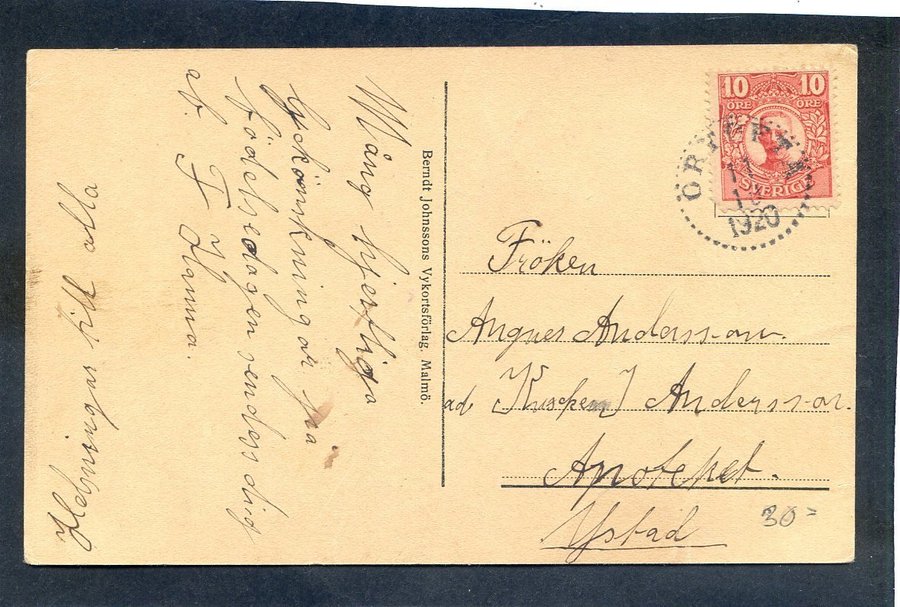 Mång hjertliga
lyckönskningar på
födelsedagen sendes dig
af. F Hanna.
Helsningar till alla
Berndt Johnssons Vykortsförlag. Malmö.
10 10
ÖRE ÖRE
SVERIGE
11
1920
Fröken
Angnes Andersson.
ad. Andersson.
Apoteket.
Ystad
30=